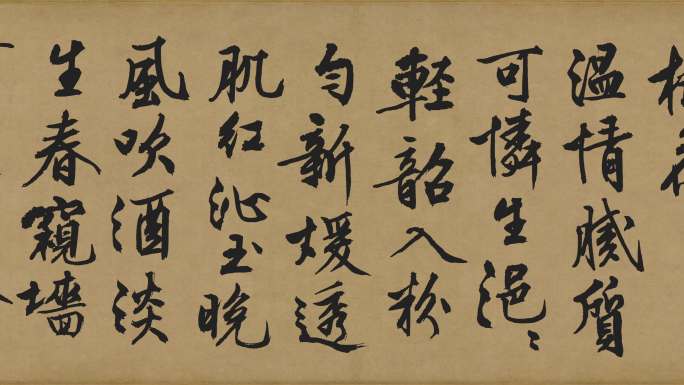 溫情膩質
可憐生浥〻
輕韶入粉
勻新煖透
肌紅沁玉晚
風吹酒淡
生春窺墻